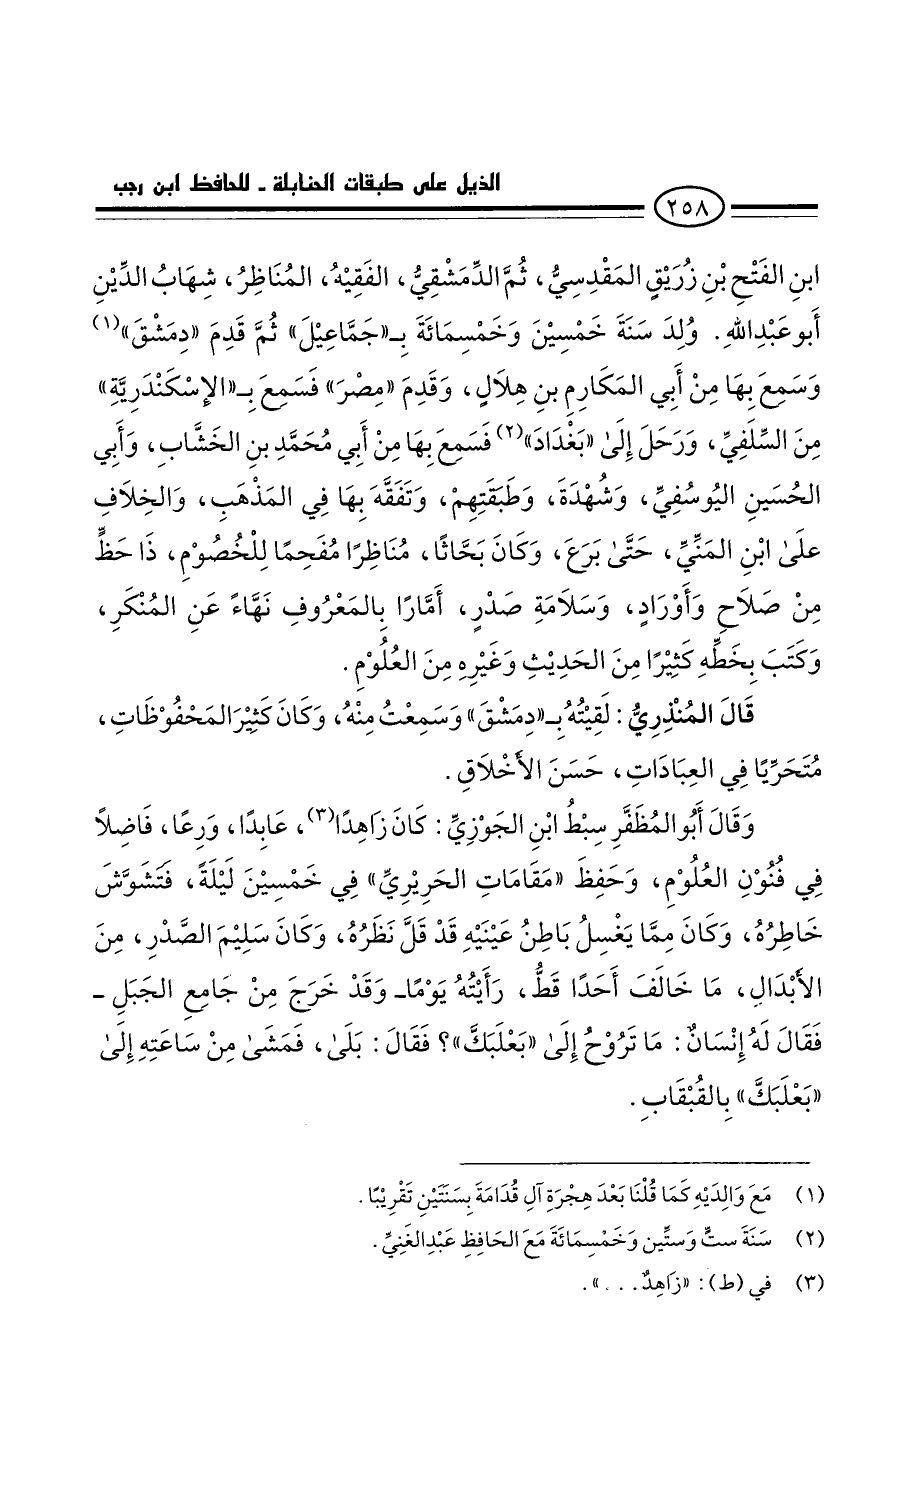 الذيل على طبقات الحنابلة ـ للحافظ ابن رجب
٢٥٨
ابنِ الفَتْحِ بْنِ زُرَيْقٍ المَقْدِسِيُّ، ثُمَّ الدِّمَشْقِيُّ، الفَقِيْهُ، المُنَاظِرُ، شِهَابُ الدِّيْنِ
أَبو عَبْدِاللهِ. وُلِدَ سَنَةَ خَمْسِيْنَ وَخَمْسِمَائَةَ بِـ«جَمَّاعِيْلَ» ثُمَّ قَدِمَ «دِمَشْقَ»(١)
وَسَمِعَ بِهَا مِنْ أَبي المَكَارِمِ بنِ هِلَالٍ، وَقَدِمَ «مِصْرَ» فَسَمِعَ بِـ«الإِسْكَنْدَرِيَّةِ»
مِنَ السِّلَفِيِّ، وَرَحَلَ إِلَىٰ «بَغْدَادَ»(٢) فَسَمِعَ بِهَا مِنْ أَبي مُحَمَّدِ بنِ الخَشَّابِ، وَأَبي
الحُسَينِ اليُوسُفِيِّ، وَشُهْدَةَ، وَطَبَقَتِهِمْ، وَتَفَقَّهَ بِهَا فِي المَذْهَبِ، وَالخِلَافِ
عَلىٰ ابْنِ المَنِّيِّ، حَتَّىٰ بَرَعَ، وَكَانَ بَحَّاثًا، مُنَاظِرًا مُفَحِمًا لِلْخُصُوْمِ، ذَا حَظٍّ
مِنْ صَلَاحٍ وَأَوْرَادٍ، وَسَلَامَةِ صَدْرٍ، أَمَّارًا بِالمَعْرُوفِ نَهَّاءً عَنِ المُنْكَرِ،
وَكَتَبَ بِخَطِّهِ كَثِيْرًا مِنَ الحَدِيْثِ وَغَيْرِهِ مِنَ العُلُوْمِ.
قَالَ المُنْذِرِيُّ: لَقِيْتُهُ بِـ«دِمَشْقَ» وَسَمِعْتُ مِنْهُ، وَكَانَ كَثِيْرَ المَحْفُوْظَاتِ،
مُتَحَرِّيًا فِي العِبَادَاتِ، حَسَنَ الأَخْلَاقِ.
وَقَالَ أَبُو المُظَفَّرِ سِبْطُ ابْنِ الجَوْزِيِّ: كَانَ زَاهِدًا(٣)، عَابِدًا، وَرِعًا، فَاضِلاً
فِي فُنُوْنِ العُلُوْمِ، وَحَفِظَ «مَقَامَاتِ الحَرِيْرِيِّ» فِي خَمْسِيْنَ لَيْلَةً، فَتَشَوَّشَ
خَاطِرُهُ، وَكَانَ مِمَّا يَغْسِلُ بَاطِنُ عَيْنَيْهِ قَدْ قَلَّ نَظَرُهُ، وَكَانَ سَلِيْمَ الصَّدْرِ، مِنَ
الأَبْدَالِ، مَا خَالَفَ أَحَدًا قَطُّ، رَأَيْتُهُ يَوْمًا ـ وَقَدْ خَرَجَ مِنْ جَامِعِ الجَبَلِ ـ
فَقَالَ لَهُ إِنْسَانٌ: مَا تَرُوْحُ إِلَىٰ «بَعْلَبَكَّ»؟ فَقَالَ: بَلَىٰ، فَمَشَىٰ مِنْ سَاعَتِهِ إِلَىٰ
«بَعْلَبَكَّ» بِالقُبْقَابِ.
(١) مَعَ وَالِدَيْهِ كَمَا قُلْنَا بَعْدَ هِجْرَةِ آلِ قُدَامَةَ بِسَنَتَيْنِ تَقْرِيْبًا.
(٢) سَنَةَ ستٍّ وَستِّين وَخَمْسِمَائَةَ مَعَ الحَافِظِ عَبْدِالغَنِيِّ.
(٣) في (ط): «زَاهِدٌ...».